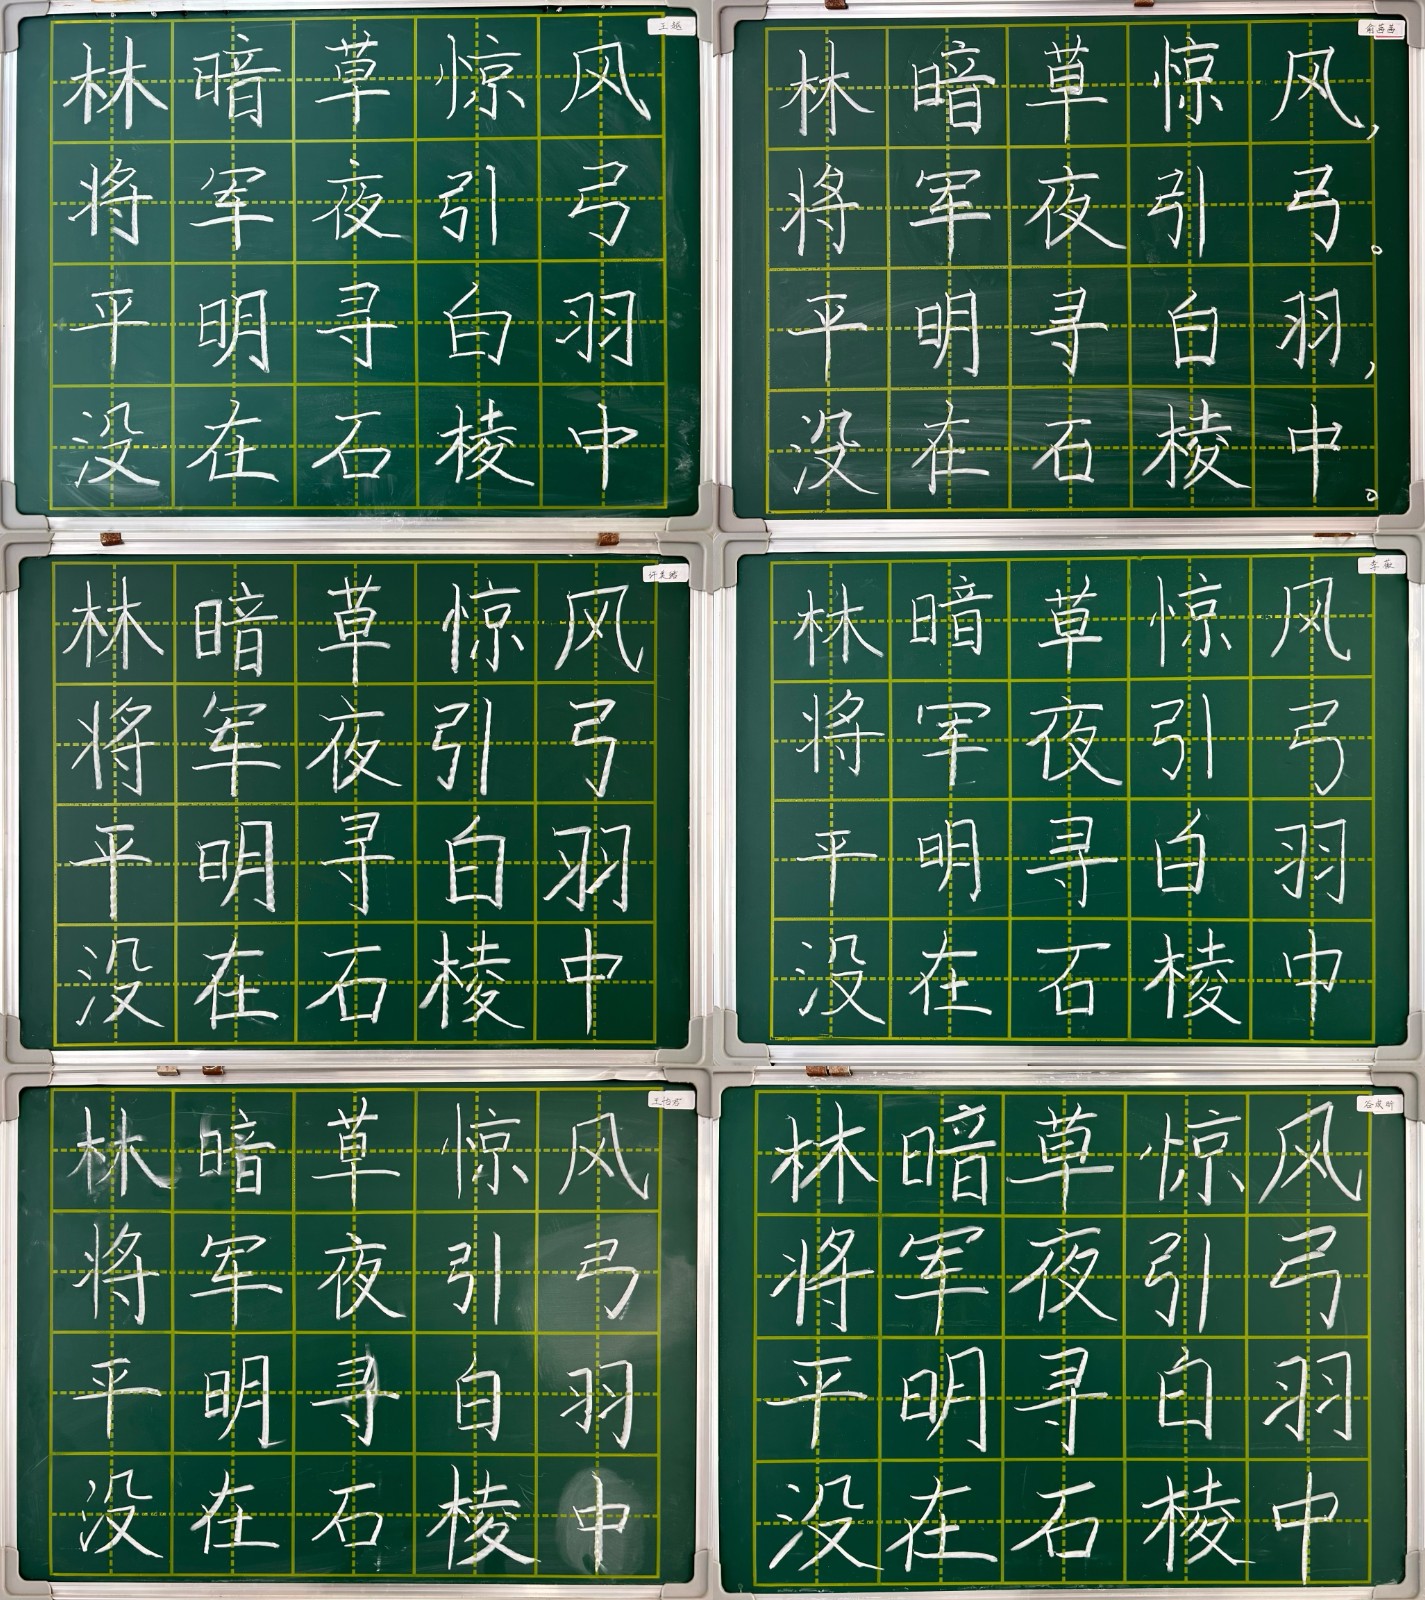 王越
林暗草惊风
将军夜引弓
平明寻白羽
没在石棱中
俞茜茜
林暗草惊风,
将军夜引弓。
平明寻白羽,
没在石棱中。
林暗草惊风
将军夜引弓
平明寻白羽
没在石棱中
李薇
林暗草惊风
将军夜引弓
平明寻白羽
没在石棱中
王怡君
林暗草惊风
将军夜引弓
平明寻白羽
没在石棱中
林暗草惊风
将军夜引弓
平明寻白羽
没在石棱中